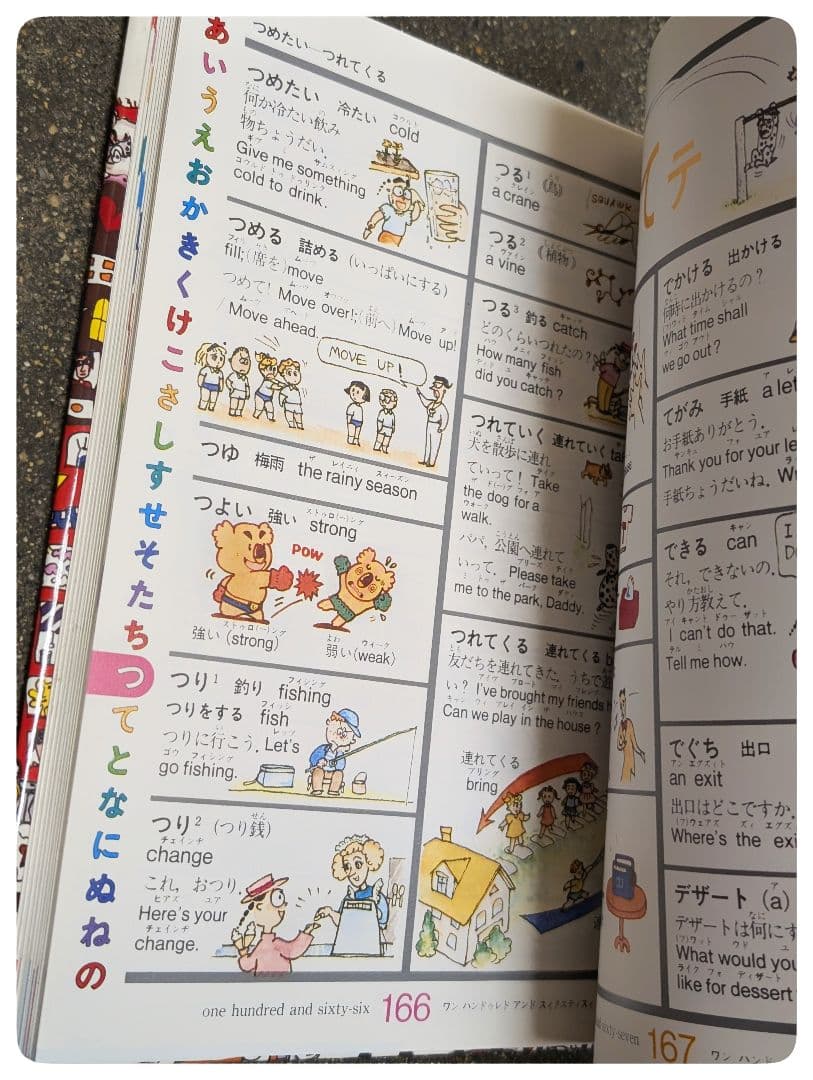 あ
い
う
え
お
か
き
く
け
こ
さ
し
す
せ
そ
た
ち
つ
て
と
な
に
ぬ
ね
の
つめたい—つれてくる
つめたい 冷たい cold
コウルド
何か冷たい飲み
物ちょうだい.
Give me something
cold to drink.
つめる 詰める (いっぱいにする)
fill;(席を)move
つめて! Move over!;(前へ) Move up!
/ Move ahead.
MOVE UP!
つゆ 梅雨 the rainy season
ザ レイニィ スィーズン
つよい 強い strong
ストゥロ(ー)ング
POW
強い (strong)
ストゥロ(ー)ング
弱い(weak)
よわ ウィーク
つり¹ 釣り fishing
フィシング
つりをする fish
フィッシ
つりに行こう. Let's
レッツ
go fishing.
ゴウ フィシング
つり² (つり銭)
せん
change
チェインヂ
これ, おつり.
Here's your
ヒアズ ユア
change.
チェインヂ
one hundred and sixty-six 166
つる¹ (鳥)
a crane
SQUAWK
つる² (植物)
a vine
つる³ 釣る catch
キャッチ
どのくらいつれたの?
How many fish
ハウ メニィ フィッシ
did you catch?
つれていく 連れていく
犬を散歩に連れ
ていって! Take
the dog for a
walk.
ウォーク
パパ, 公園へ連れて
いって. Please take
me to the park, Daddy.
つれてくる 連れてくる
友だちを連れてきた. うちで遊
い? I've brought my friends
Can we play in the house?
連れてくる
bring
ブリング
て テ
でかける 出かける
何時に出かけるの?
What time shall
we go out?
てがみ 手紙 a let
お手紙ありがとう.
Thank you for your le
手紙ちょうだいね.
できる can
キャン
それ, できないの.
やり方教えて.
I can't do that.
Tell me how.
でぐち 出口
an exit
アン エグズィト
出口はどこですか.
Where's the exi
デザート (a)
デザートは何にす
What would you
like for dessert
sixty-seven 167